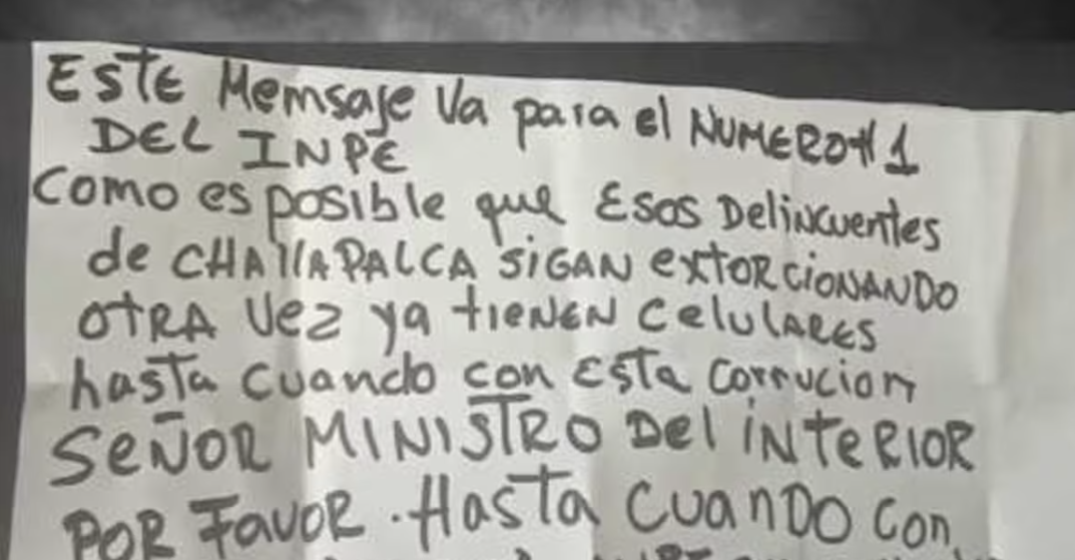 ESTE Memsaje Va para el NUMERO#1
DEL INPE
Como es posible que Esos Delincuentes
de CHAllAPALCA SIGAN extorcioNANDO
OTRA Vez ya tIENEN CelulARES
hasta cuando con Esta Corrucion
SEÑOR MINISTRO Del iNteRIOR
POR FAVOR. HASTA CUANDO Con